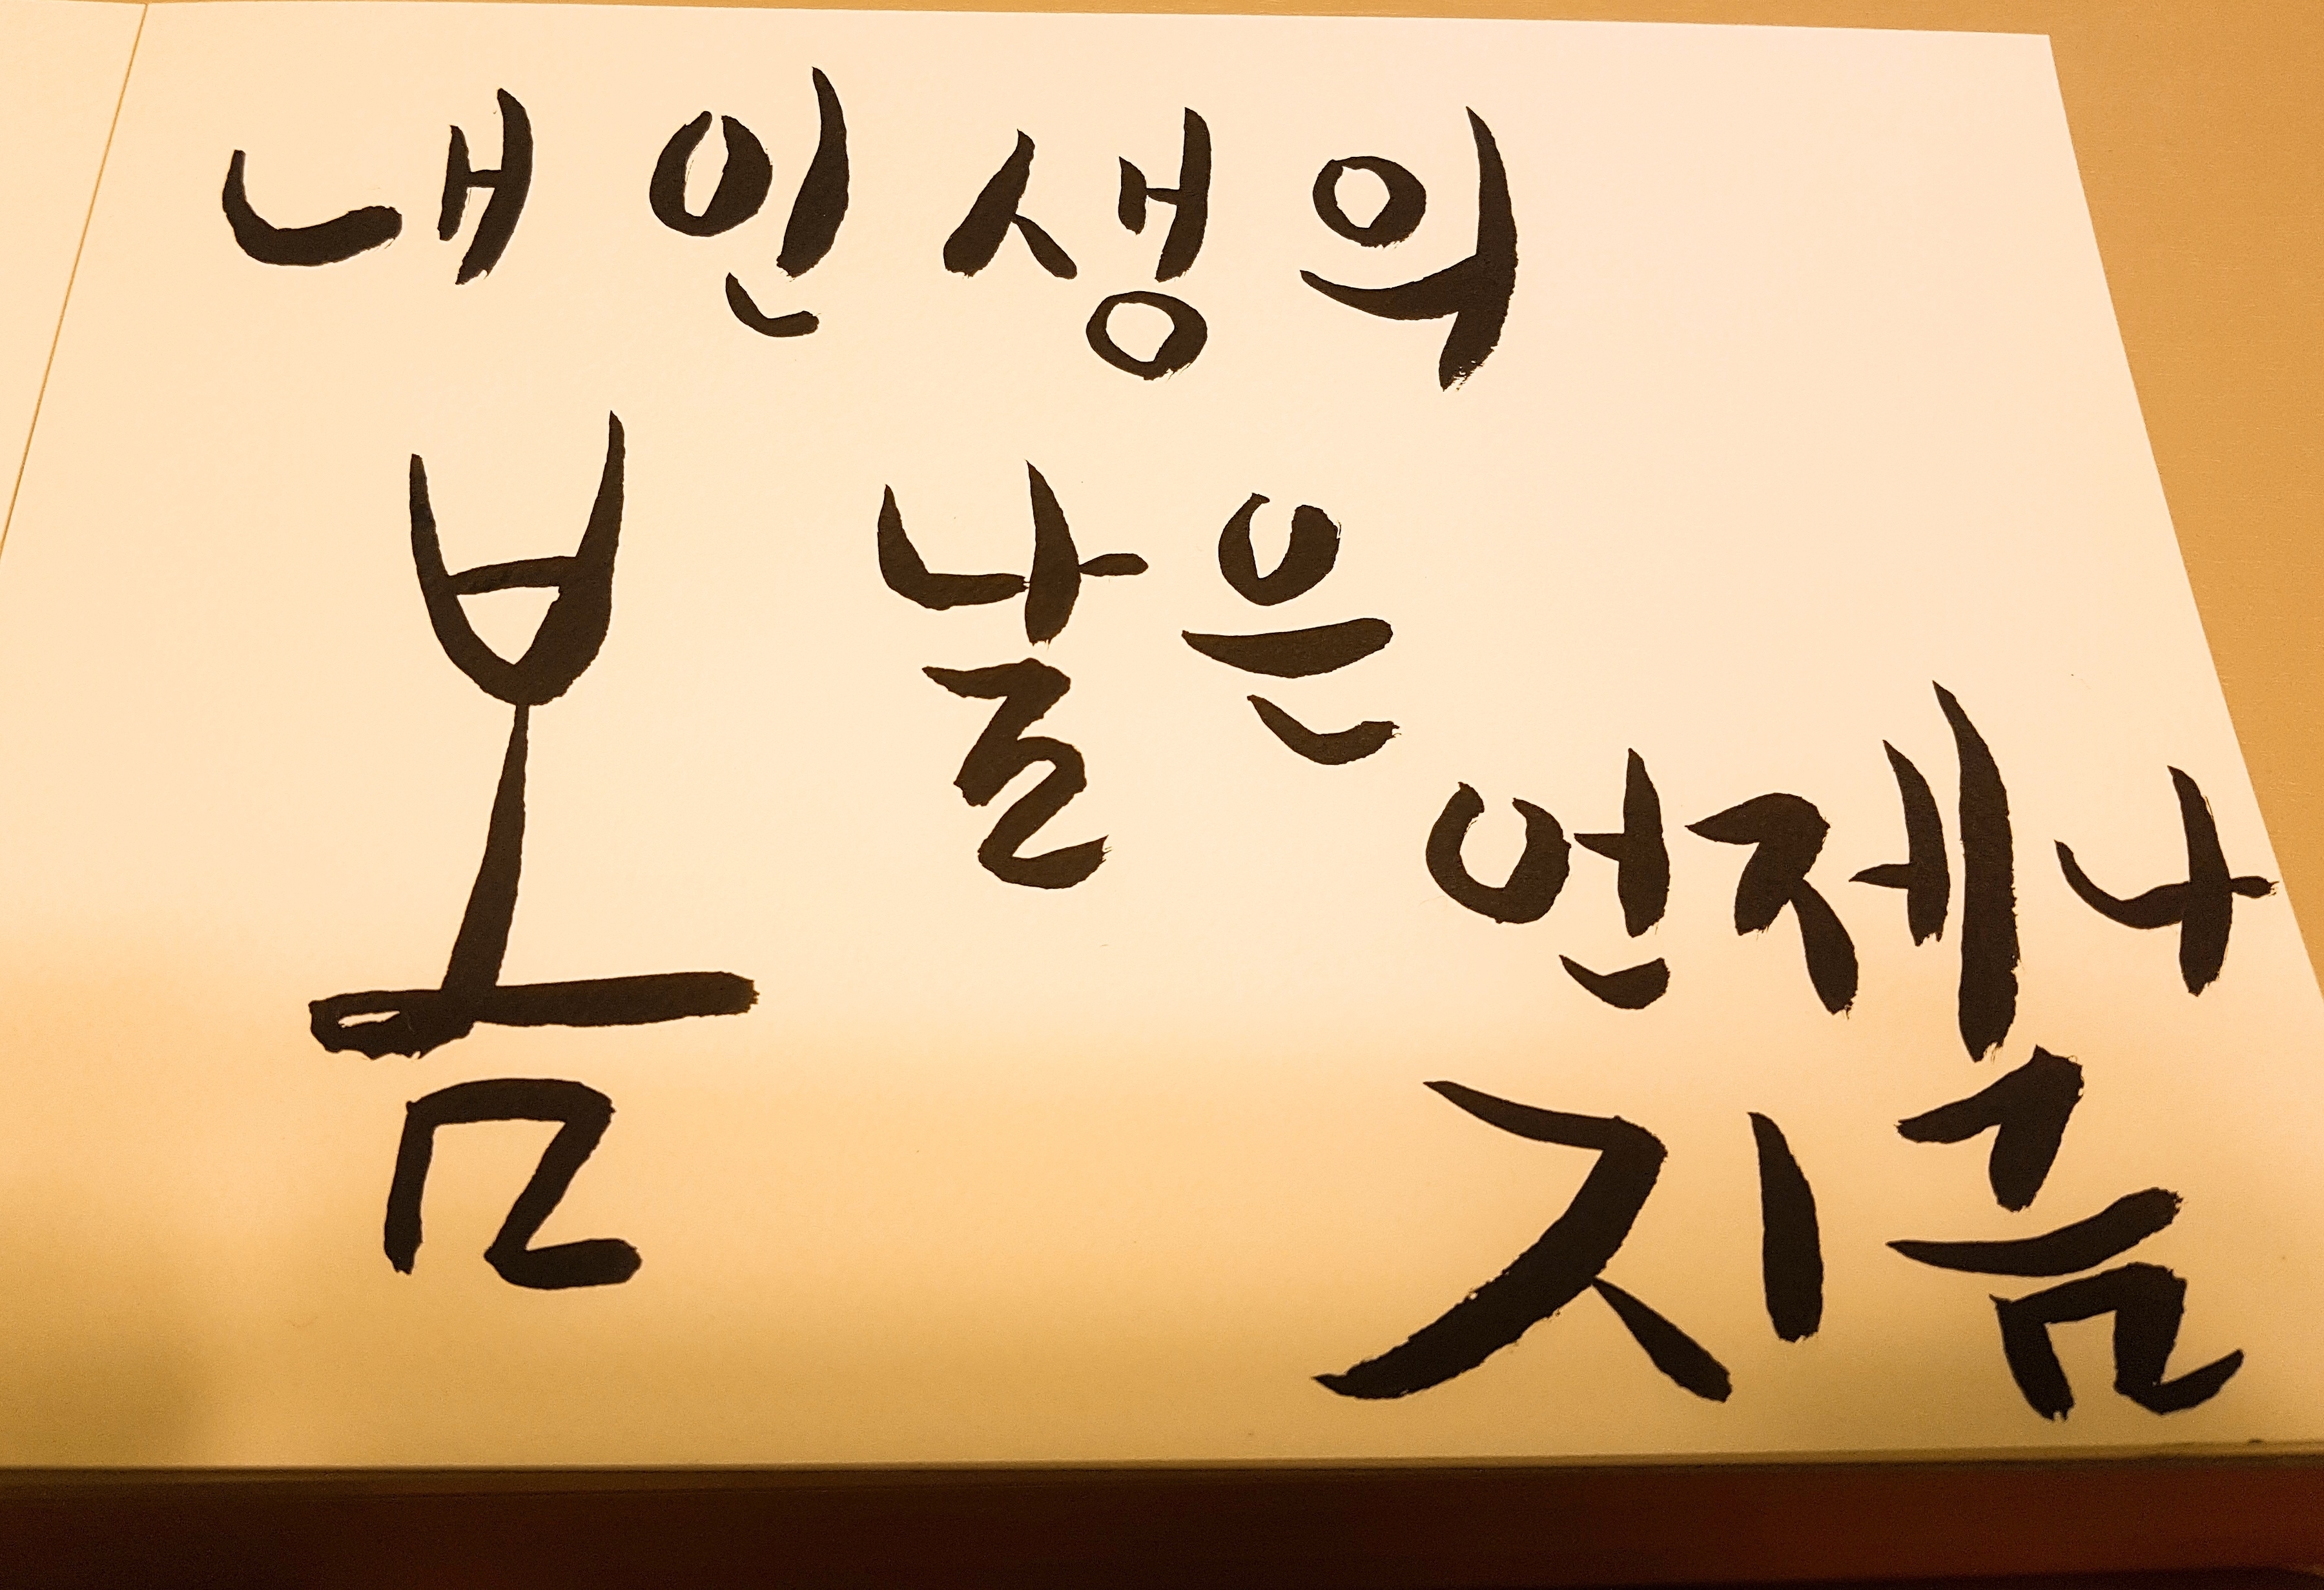 내 인생의
봄 날은
언제나
지금